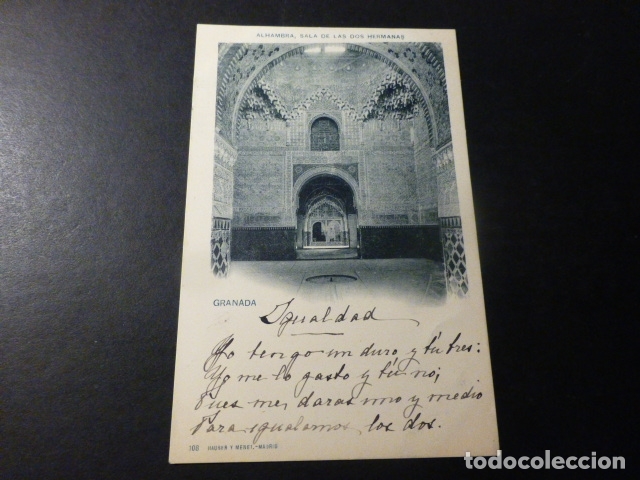 ALHAMBRA, SALA DE LAS DOS HERMANAS
GRANADA
Igualdad
Yo tengo un duro y tú tres:
Yo me lo gasto y tú nó;
Pues me darás uno y medio
Para igualarnos los dos.
100 HAUSER Y MENET.-MADRID
todocoleccion.net